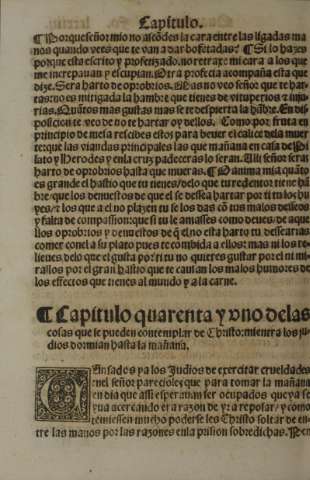 Capitulo.
¶ Porque señor mio no ascõdes la cara entre las ligadas ma
nos quando veces que te van a dar bofetadas? ¶ Si lo hazes
porque esta escrito y profetizado. no retraxe mi cara a los que
me increpauan y escupian. Otra profecia acompaña esta que
dize. Sera harto de oprobrios. Mas no veo señor que te har
tas: no es mitigada la hambre que tienes de vituperios z inju
rias. Quãtos mas gustas mas se te despierta la hãbre. En dis
posicion te veo de no te hartar oy dellos. Como por fruta en
principio de mesa rescibes estos para beuer el calice dela muer
te: que las viandas principales las que mañana en casa de Pi
lato y Herodes y en la cruz padeceras lo seran. Alli señor seras
harto de oprobrios hasta que mueras. ¶ O anima mia quãto
es grande el hastio que tu tienes / delo que tu redentor tiene hã
bre / que los denuestos de que el se dessea hartar por ti tu los hu
yes / z los que a el no plazen tu se los das cõ tus malos desseos
y falta de compassion: que si tu le amasses como deues / de aque
llos oprobrios y denuestos de q̃ el no esta harto tu dessearias
comer con el a su plato pues te combida a ellos: mas ni los re
lieues delo que el gusta por ti tu no quieres gustar por el ni mi
rallos por el gran hastio que te causan los malos humores de
los efectos que tienes al mundo y a la carne.
¶ Capitulo quarenta y vno delas
cosas que se pueden contemplar de Christo: mientra los ju
dios dormian hasta la mañana.
Cansados ya los Judios de exercitar crueldades
nel señor parecioles que para tomar la mañana
en dia que assi esperauan ser ocupados que ya se
yua acercando era razon de yr a reposar / y como
temiessen mucho poderse les Christo soltar de en
tre las manos por las razones en la prision sobredichas. Pen